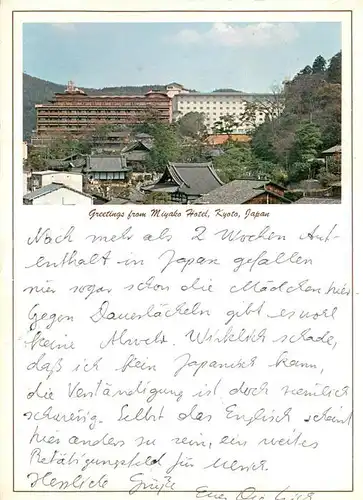 Greetings from Miyako Hotel, Kyoto, Japan
Nach mehr als 2 Wochen Auf-
enthalt in Japan gefallen
mir sogar schon die Mädchen hier.
Gegen Dauerlächeln gibt es wohl
keine Abwehr. Wirklich schade,
daß ich kein Japanisch kann,
die Verständigung ist doch ziemlich
schwierig. Selbst das Englisch scheint
hier anders zu sein, ein weites
Betätigungsfeld für
Herzliche Grüße
Euer